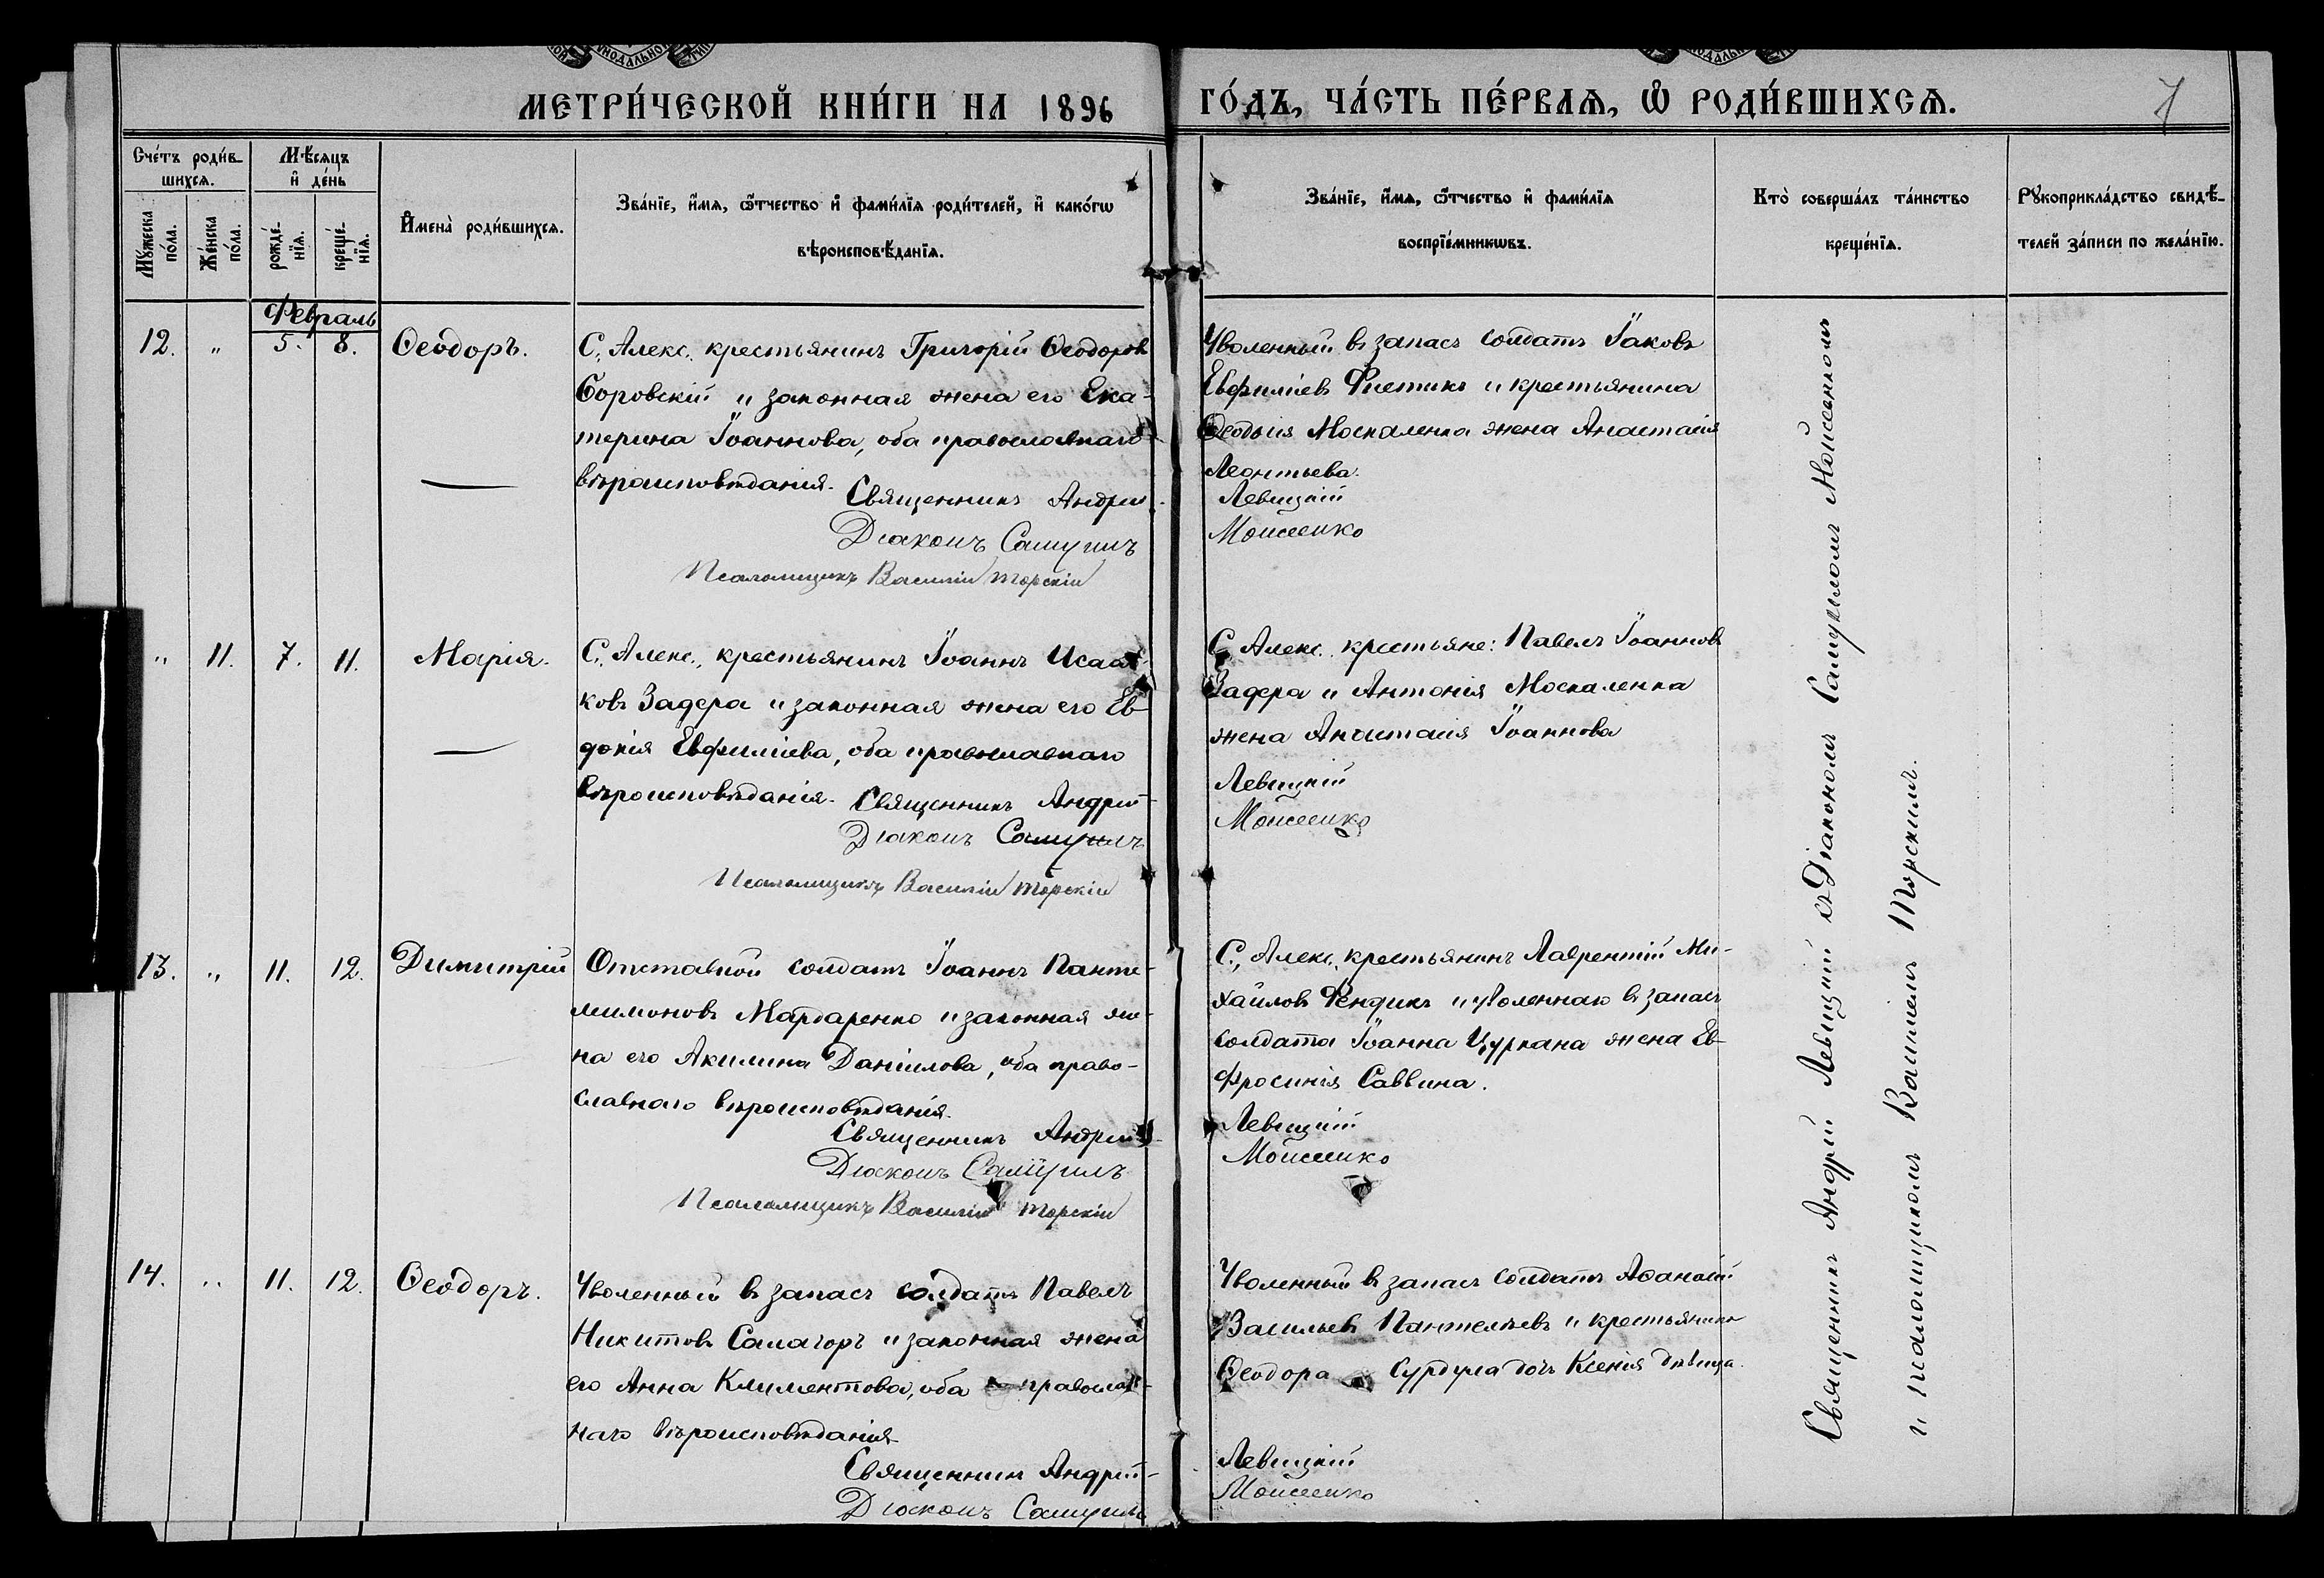 МЕТРИ́ЧЕСКОЙ КНИ́ГИ НА 1896 ГО́ДЪ, ЧА́СТЬ ПЕ́РВАѦ, Ѽ РОДИ́ВШИХСѦ.
7
Сче́тъ роди́в-
шихсѧ.
Мѣ́сѧцъ
и҆ де́нь
Мꙋ́жеска по́ла.
Же́нска по́ла.
рожде́нїѧ.
креще́нїѧ.
И҆мена̀ роди́вшихсѧ.
Зва́нїе, и҆́мѧ, ѻ҆́тчество и҆ фами́лїѧ роди́телей, и҆ како́гѡ
вѣроисповѣ́данїѧ.
Зва́нїе, и҆́мѧ, ѻ҆́тчество и҆ фами́лїѧ
воспрїе́мникѡвъ.
Кто̀ соверша́лъ та́инство
креще́нїѧ.
Рꙋкоприкла́дство свидѣ́-
телей за́писи по жела́нїю.
Февраль
12. „ 5. 8. Ѳеодоръ.
С. Алекс. крестьянинъ Григорій Ѳеодоровъ
Боровскій и законная жена его Ека-
терина Іоаннова, оба православнаго
вѣроисповѣданія.
Священникъ Андрей
Діаконъ Самуилъ
Псаломщикъ Василій Торскій
Уволенный въ запасъ солдатъ Іаковъ
Евфиміевъ Фистикъ и крестьянина
Ѳеодосія Москаленка жена Анастасія
Леонтьева.
Левицкій
Моисеенко
„ 11. 7. 11. Марія.
С. Алекс. крестьянинъ Іоаннъ Исаа-
ковъ Задера и законная жена его Ев-
докія Евфиміева, оба православнаго
вѣроисповѣданія.
Священникъ Андрей
Діаконъ Самуилъ
Псаломщикъ Василій Торскій
С. Алекс. крестьяне: Павелъ Іоанновъ
Задера и Антонія Москаленка
жена Анастасія Іоаннова
Левицкій
Моисеенко
13. „ 11. 12. Димитрій
Отставной солдатъ Іоаннъ Панте-
лимоновъ Мардаренко и законная же-
на его Акилина Даніилова, оба право-
славнаго вѣроисповѣданія.
Священникъ Андрей
Діаконъ Самуилъ
Псаломщикъ Василій Торскій
С. Алекс. крестьянинъ Лаврентій Ми-
хайловъ Фендикъ и уволеннаго въ запасъ
солдата Іоанна Цуркана жена Ев-
фросинія Саввина.
Левицкій
Моисеенко
14. „ 11. 12. Ѳеодоръ.
Уволенный въ запасъ солдатъ Павелъ
Никитовъ Самагоръ и законная жена
его Анна Климентова, оба православ-
наго вѣроисповѣданія
Священникъ Андрей
Діаконъ Самуилъ
Уволенный въ запасъ солдатъ Аѳанасій
Васильевъ Пантелѣевъ и крестьянина
Ѳеодора Сурдула дочь Ксенія дѣвица.
Левицкій
Моисеенко
Священникъ Андрей Левицкій съ Діакономъ Самуиломъ Моисеенкомъ
и псаломщикомъ Василіемъ Торскимъ.